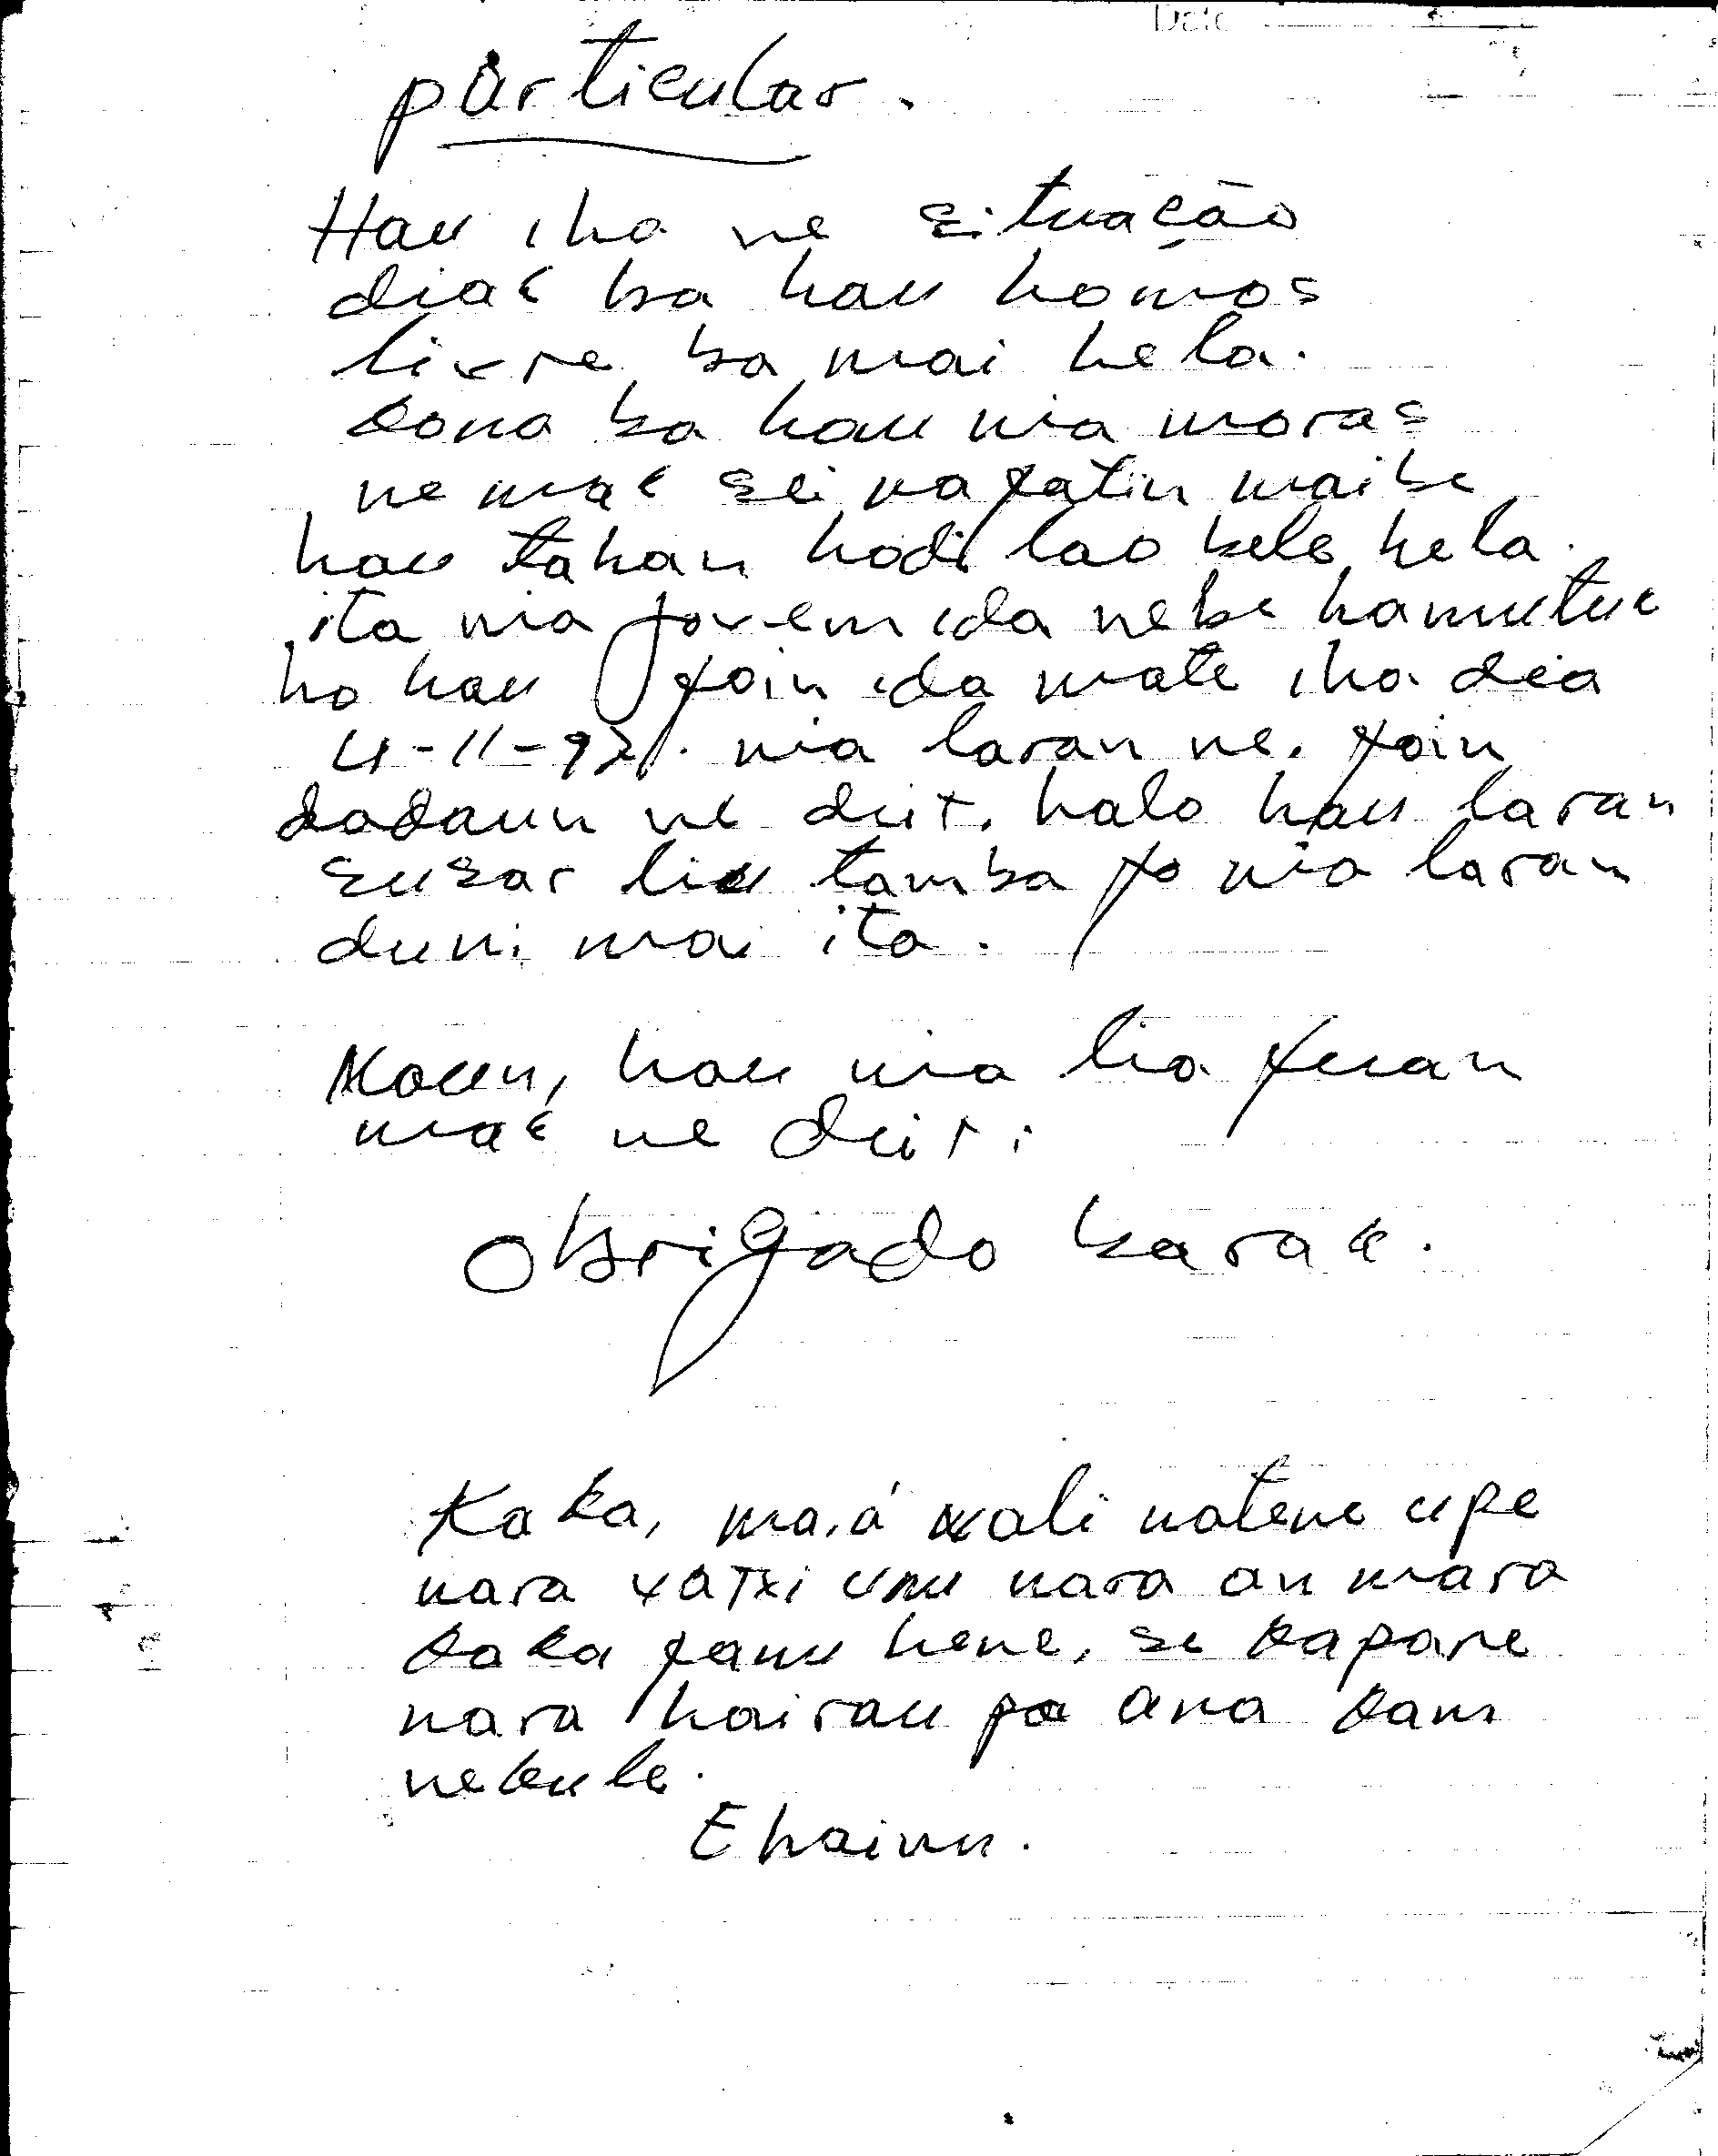 Date
particular.
Hau iha ne situação
diak ba hau homos
livre ba mai hela.
Kona ba hau nia moras
ne mak sei nafatin maibe
hau tahan hodi lao bele hela.
ita nia jovem ida nebe hamutuk
ho hau foin ida mate iha dia
4-11-97. nia laran ne. foin
dadaun ne deit. halo hau laran
susar liu tamba fo nia laran
duni mai ita.
Maun, hau nia lia fuan
mak ne deit.
Obrigado barak.
Kaka, mai á wali natene upe
nara vatxi umu nara an mara
kaka fanu hene, se kapare
nara hairau pa ana kam
nekule.
Ehainu.